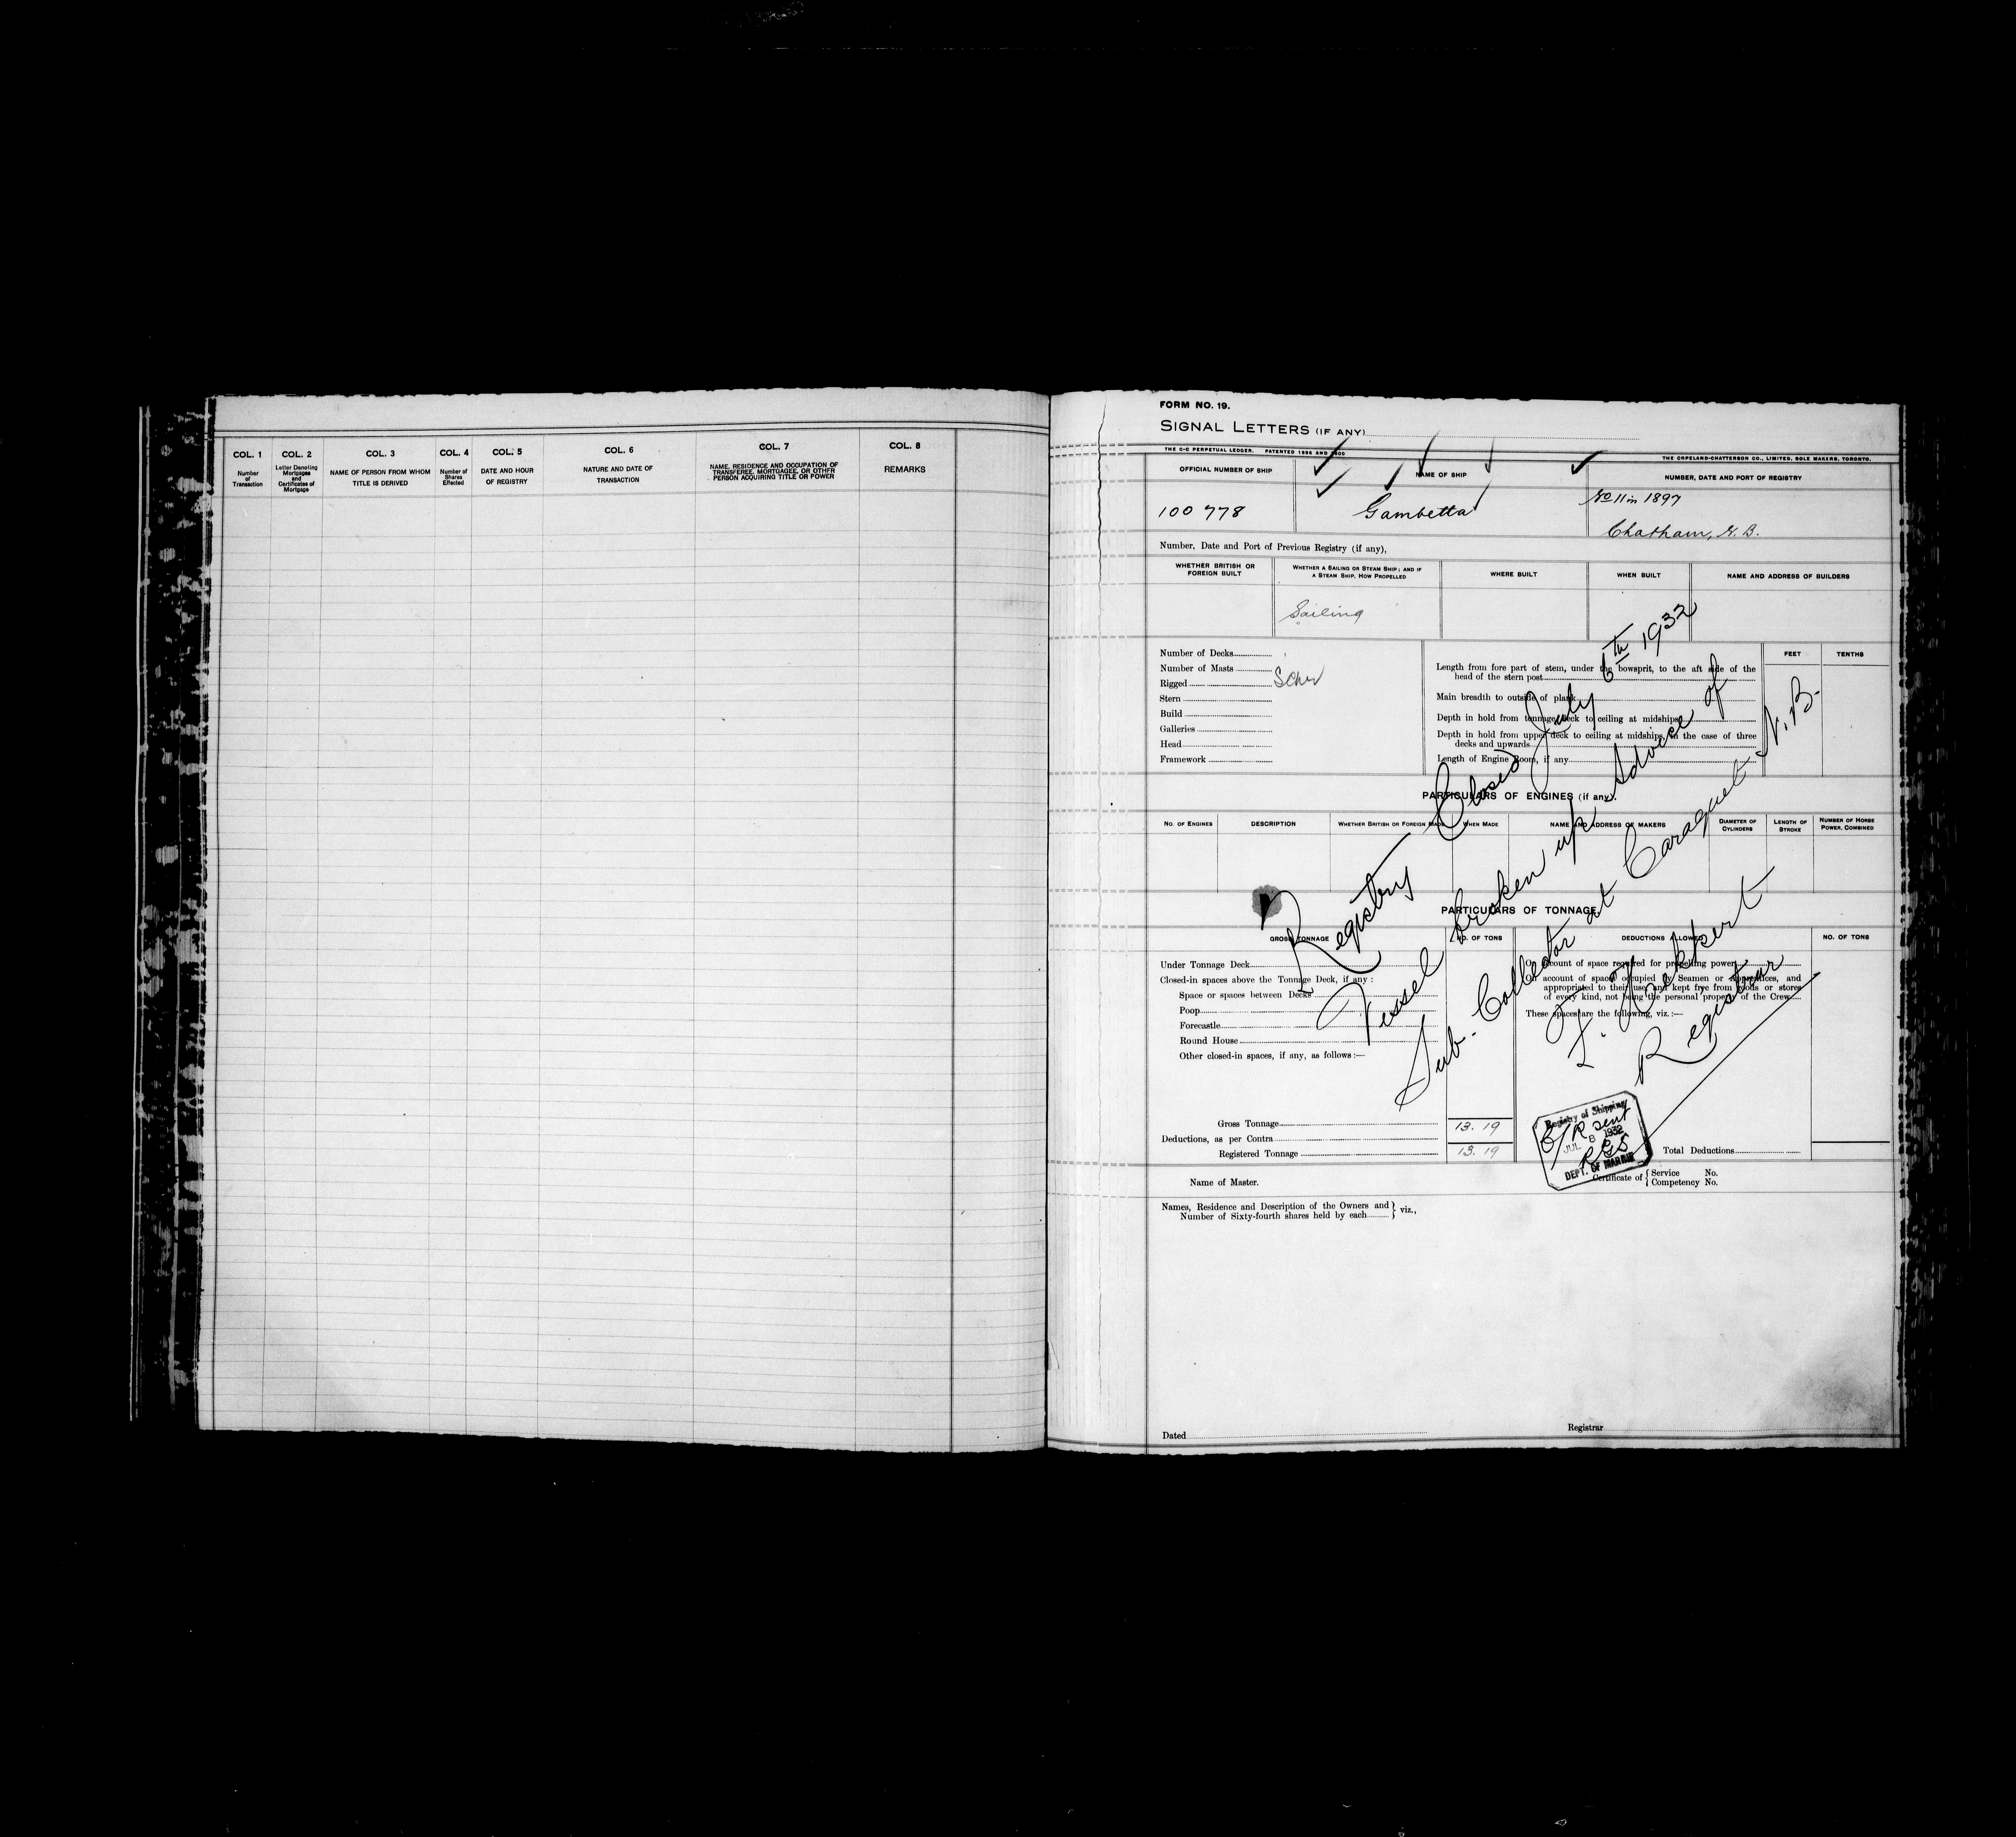 COL. 1
Number
of
Transaction
COL. 2
Letter Denoting
Mortgages
and
Certificates of
Mortgage
COL. 3
NAME OF PERSON FROM WHOM
TITLE IS DERIVED
COL. 4
Number of
Shares
Effected
COL. 5
DATE AND HOUR
OF REGISTRY
COL. 6
NATURE AND DATE OF
TRANSACTION
COL. 7
NAME, RESIDENCE AND OCCUPATION OF
TRANSFEREE, MORTGAGEE, OR OTHER
PERSON ACQUIRING TITLE OR POWER
COL. 8
REMARKS
FORM NO. 19.
SIGNAL LETTERS (IF ANY)
THE C-C PERPETUAL LEDGER. PATENTED 1896 AND 1900
THE COPELAND-CHATTERSON CO., LIMITED, SOLE MAKERS, TORONTO.
OFFICIAL NUMBER OF SHIP
NAME OF SHIP
NUMBER, DATE AND PORT OF REGISTRY
100778
Gambetta
No 11 in 1897
Chatham, N. B.
Number, Date and Port of Previous Registry (if any),
WHETHER BRITISH OR
FOREIGN BUILT
WHETHER A SAILING OR STEAM SHIP; AND IF
A STEAM SHIP, HOW PROPELLED
WHERE BUILT
WHEN BUILT
NAME AND ADDRESS OF BUILDERS
Sailing
Number of Decks
Number of Masts
Rigged Schr
Stern
Build
Galleries
Head
Framework
FEET
TENTHS
Length from fore part of stem, under the bowsprit, to the aft side of the
head of the stern post
Main breadth to outside of plank
Depth in hold from tonnage deck to ceiling at midships
Depth in hold from upper deck to ceiling at midships, in the case of three
decks and upwards
Length of Engine Room, if any
PARTICULARS OF ENGINES (if any).
NO. OF ENGINES
DESCRIPTION
WHETHER BRITISH OR FOREIGN MADE
WHEN MADE
NAME AND ADDRESS OF MAKERS
DIAMETER OF
CYLINDERS
LENGTH OF
STROKE
NUMBER OF HORSE
POWER, COMBINED
Registry Closed July 6th 1932
Vessel broken up Advice of
Sub. Collector at Caraquet N.B.
Registrar
PARTICULARS OF TONNAGE
GROSS TONNAGE
NO. OF TONS
DEDUCTIONS ALLOWED
NO. OF TONS
Under Tonnage Deck
Closed-in spaces above the Tonnage Deck, if any :
Space or spaces between Decks
Poop
Forecastle
Round House
Other closed-in spaces, if any, as follows :—
On account of space required for propelling power
On account of space occupied by Seamen or Apprentices, and
appropriated to their use, and kept free from goods or stores
of every kind, not being the personal property of the Crew
These spaces are the following, viz. :—
Gross Tonnage 13. 19
Deductions, as per Contra
Registered Tonnage 13. 19
Registry of Shipping
C/R sent
JUL 8 1932
DEPT. OF MARINE
Total Deductions
Name of Master.
Certificate of { Service No.
Competency No.
Names, Residence and Description of the Owners and } viz.,
Number of Sixty-fourth shares held by each
Dated
Registrar